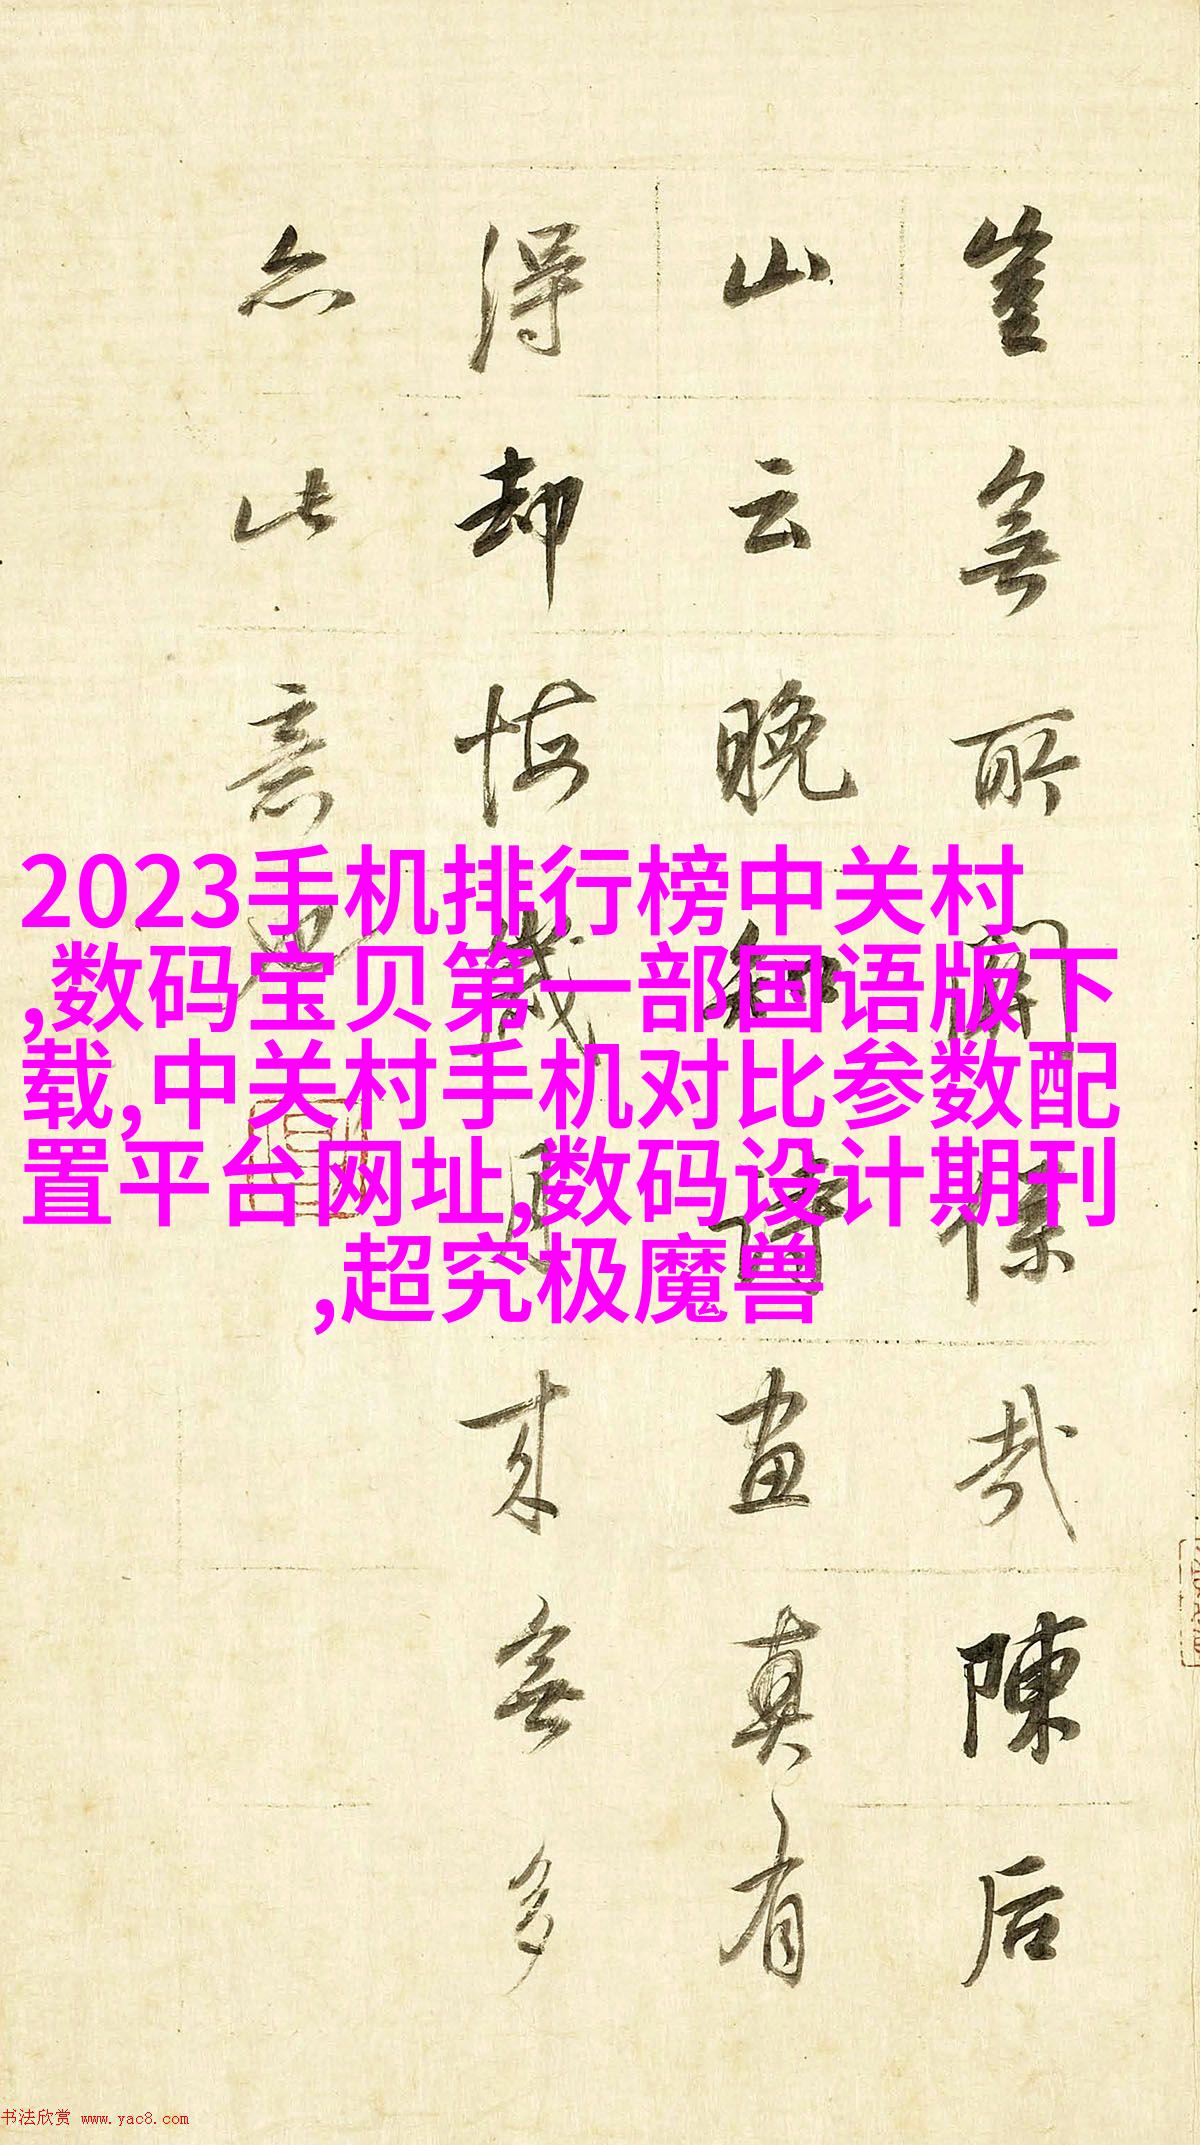 豈無所係哉陳后
山云晚知畫真有
得却悔歲月来無多
亦此意也
2023手机排行榜中关村
,数码宝贝第一部国语版下
载,中关村手机对比参数配
置平台网址,数码设计期刊
,超究极魔兽
书法欣赏 www.yac8.com